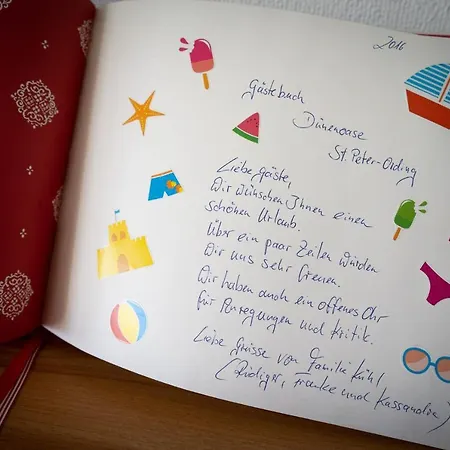 2016
Gästebuch
Dünenoase
St. Peter-Ording
Liebe Gäste,
Wir wünschen Ihnen einen
schönen Urlaub.
Über ein paar Zeilen würden
wir uns sehr freuen.
Wir haben auch ein offenes Ohr
für Anregungen und Kritik.
Liebe Grüsse von Familie Kühl
(Rüdiger, Frauke und Kassandra)